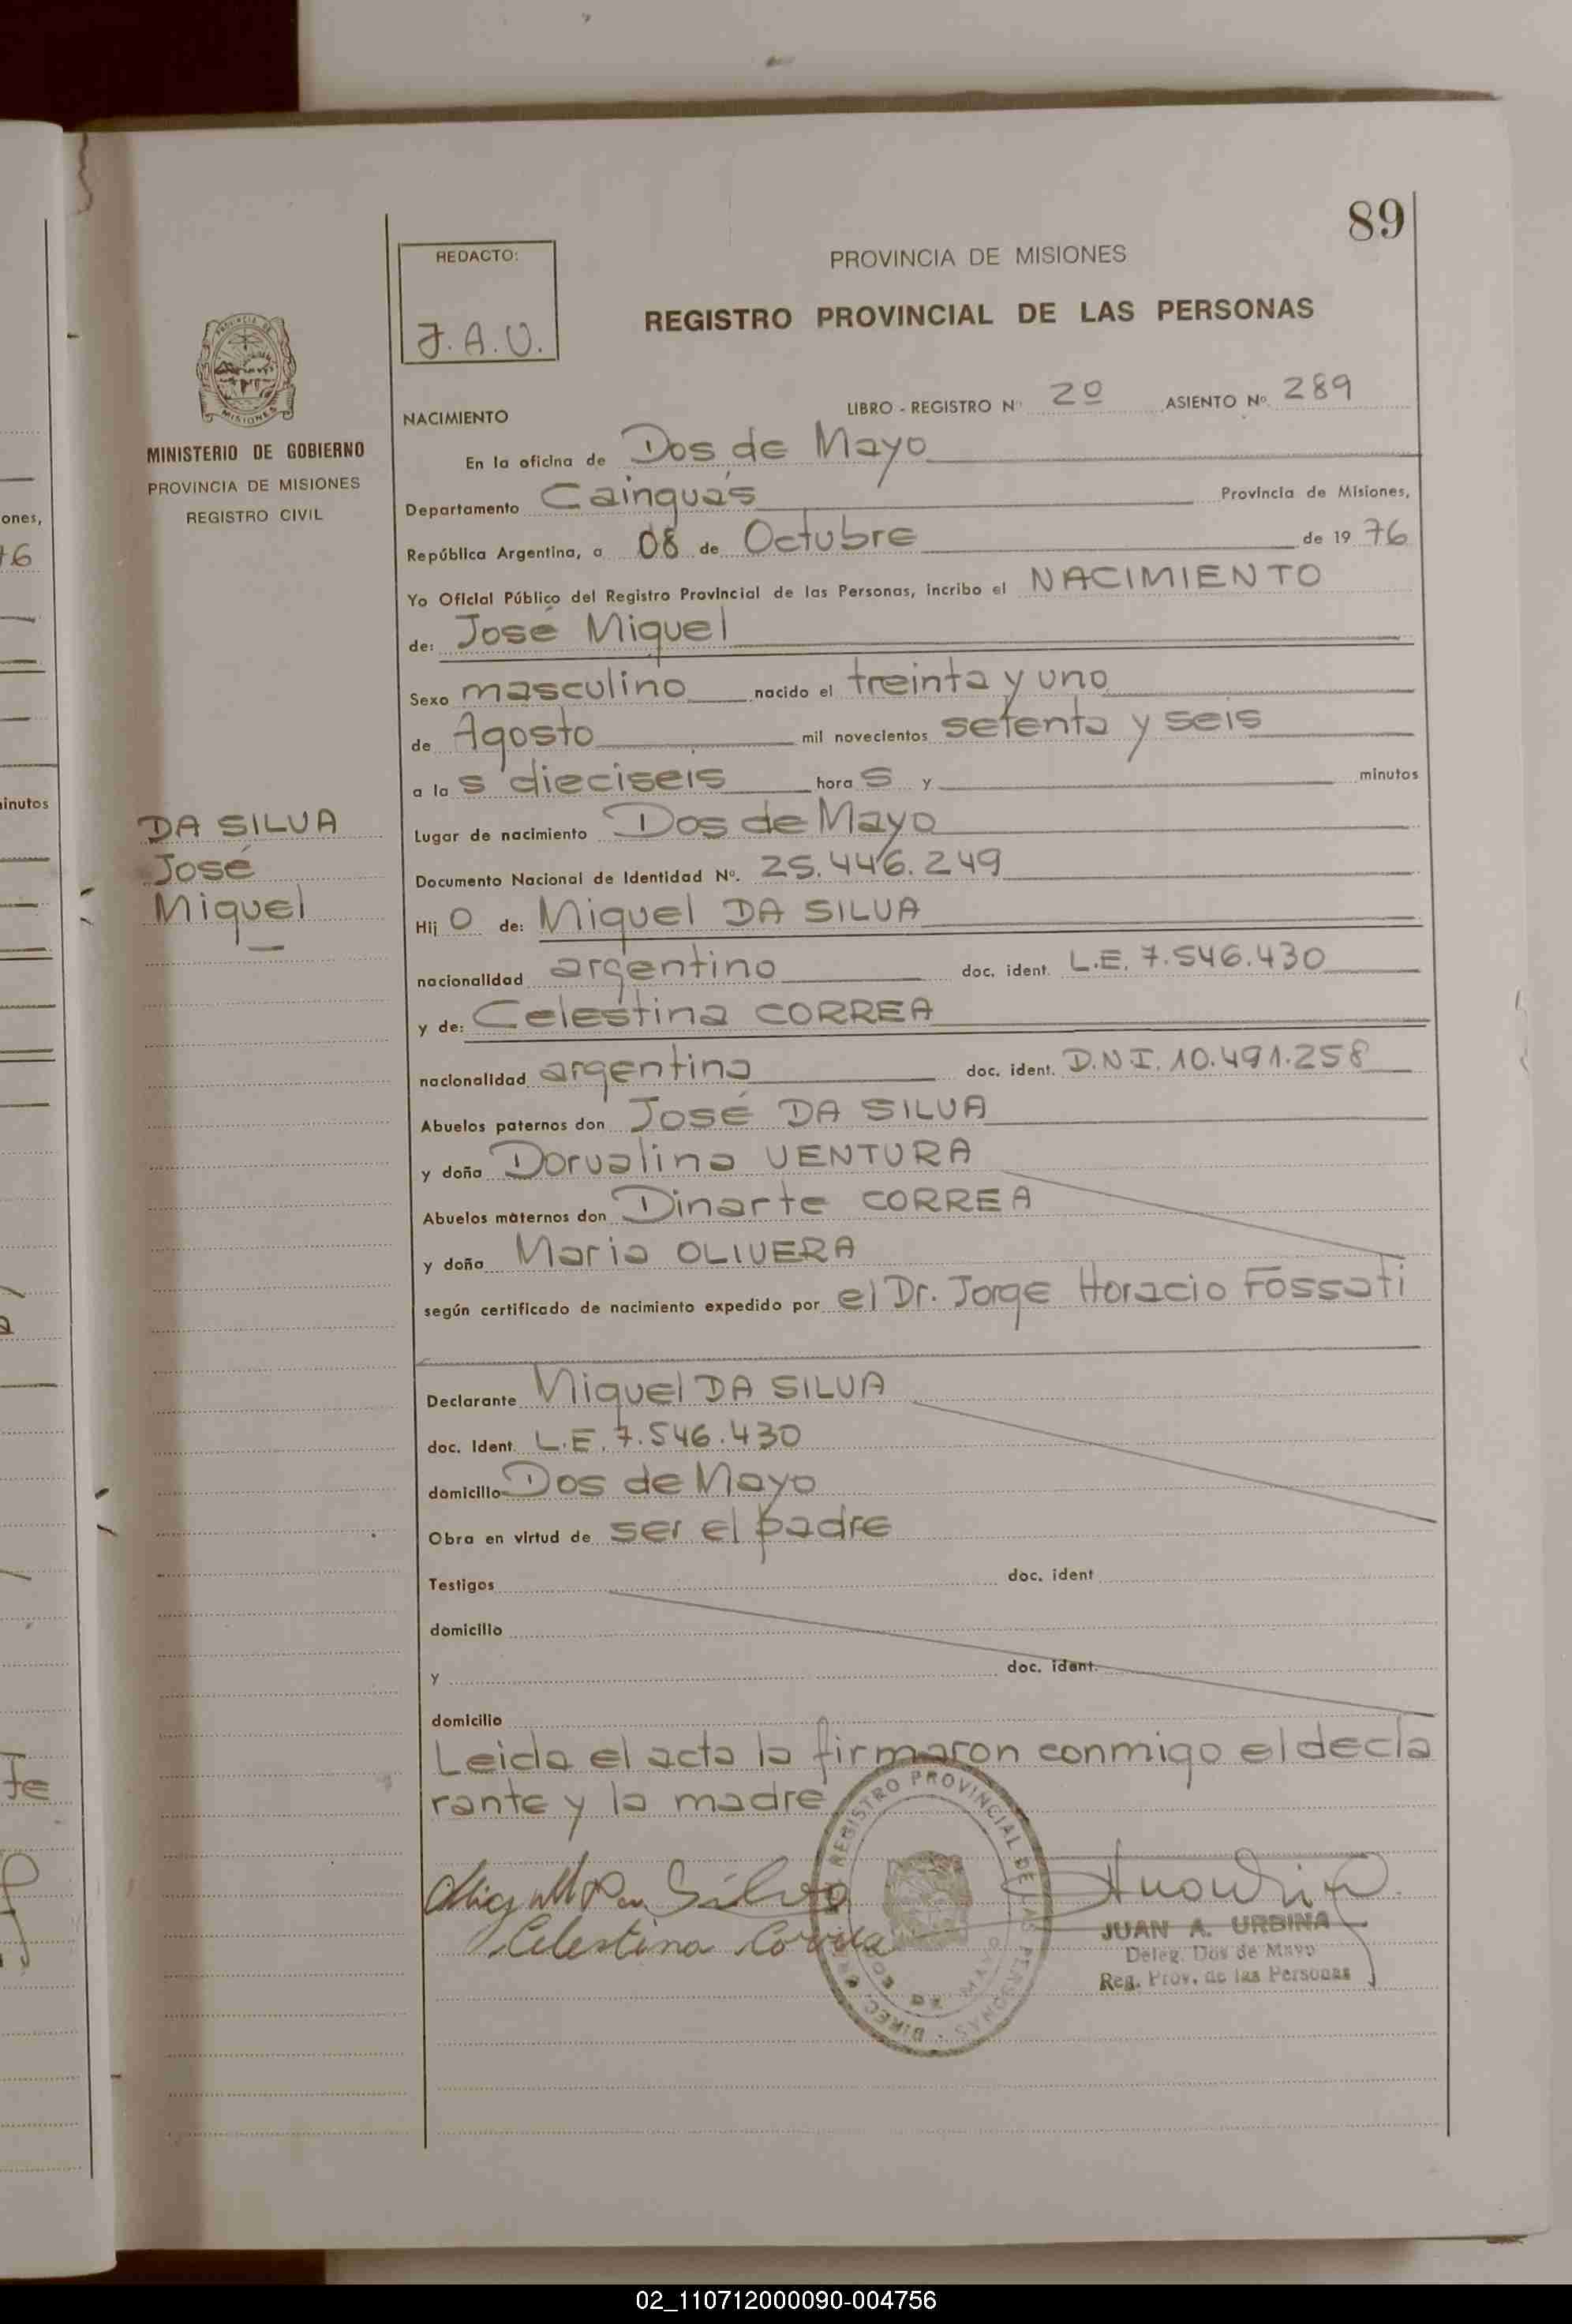 89
REDACTO:
J.A.U.
PROVINCIA DE MISIONES
REGISTRO PROVINCIAL DE LAS PERSONAS
MISIONES
MINISTERIO DE GOBIERNO
PROVINCIA DE MISIONES
REGISTRO CIVIL
NACIMIENTO LIBRO - REGISTRO Nº 2º ASIENTO Nº. 289
En la oficina de Dos de Mayo
Departamento Cainguás Provincia de Misiones,
República Argentina, a 08 de Octubre de 19 76
Yo Oficial Público del Registro Provincial de las Personas, incribo el NACIMIENTO
de: José Miguel
Sexo masculino nacido el treinta y uno
de Agosto mil novecientos setenta y seis
a la s dieciseis hora s y minutos
DA SILVA
José
Miguel
Lugar de nacimiento Dos de Mayo
Documento Nacional de Identidad Nº. 25.446.249
Hij o de: Miguel DA SILVA
nacionalidad argentino doc. ident. L.E. 7.546.430
y de: Celestina CORREA
nacionalidad argentina doc. ident. D.N.I. 10.491.258
Abuelos paternos don José DA SILVA
y doña Dorvalina VENTURA
Abuelos maternos don Dinarte CORREA
y doña Maria OLIVERA
según certificado de nacimiento expedido por el Dr. Jorge Horacio Fossati
Declarante Miguel DA SILVA
doc. Ident. L.E. 7.546.430
domicilio Dos de Mayo
Obra en virtud de ser el padre
Testigos doc. ident
domicilio
y doc. ident.
domicilio
Leida el acta la firmaron conmigo el decla
rante y la madre
REGISTRO PROVINCIAL DE LAS PERSONAS
Celestina Correa
JUAN A. URBINA
Deleg. Dos de Mayo
Reg. Prov. de las Personas
ones,
76
inutos
02_110712000090-004756